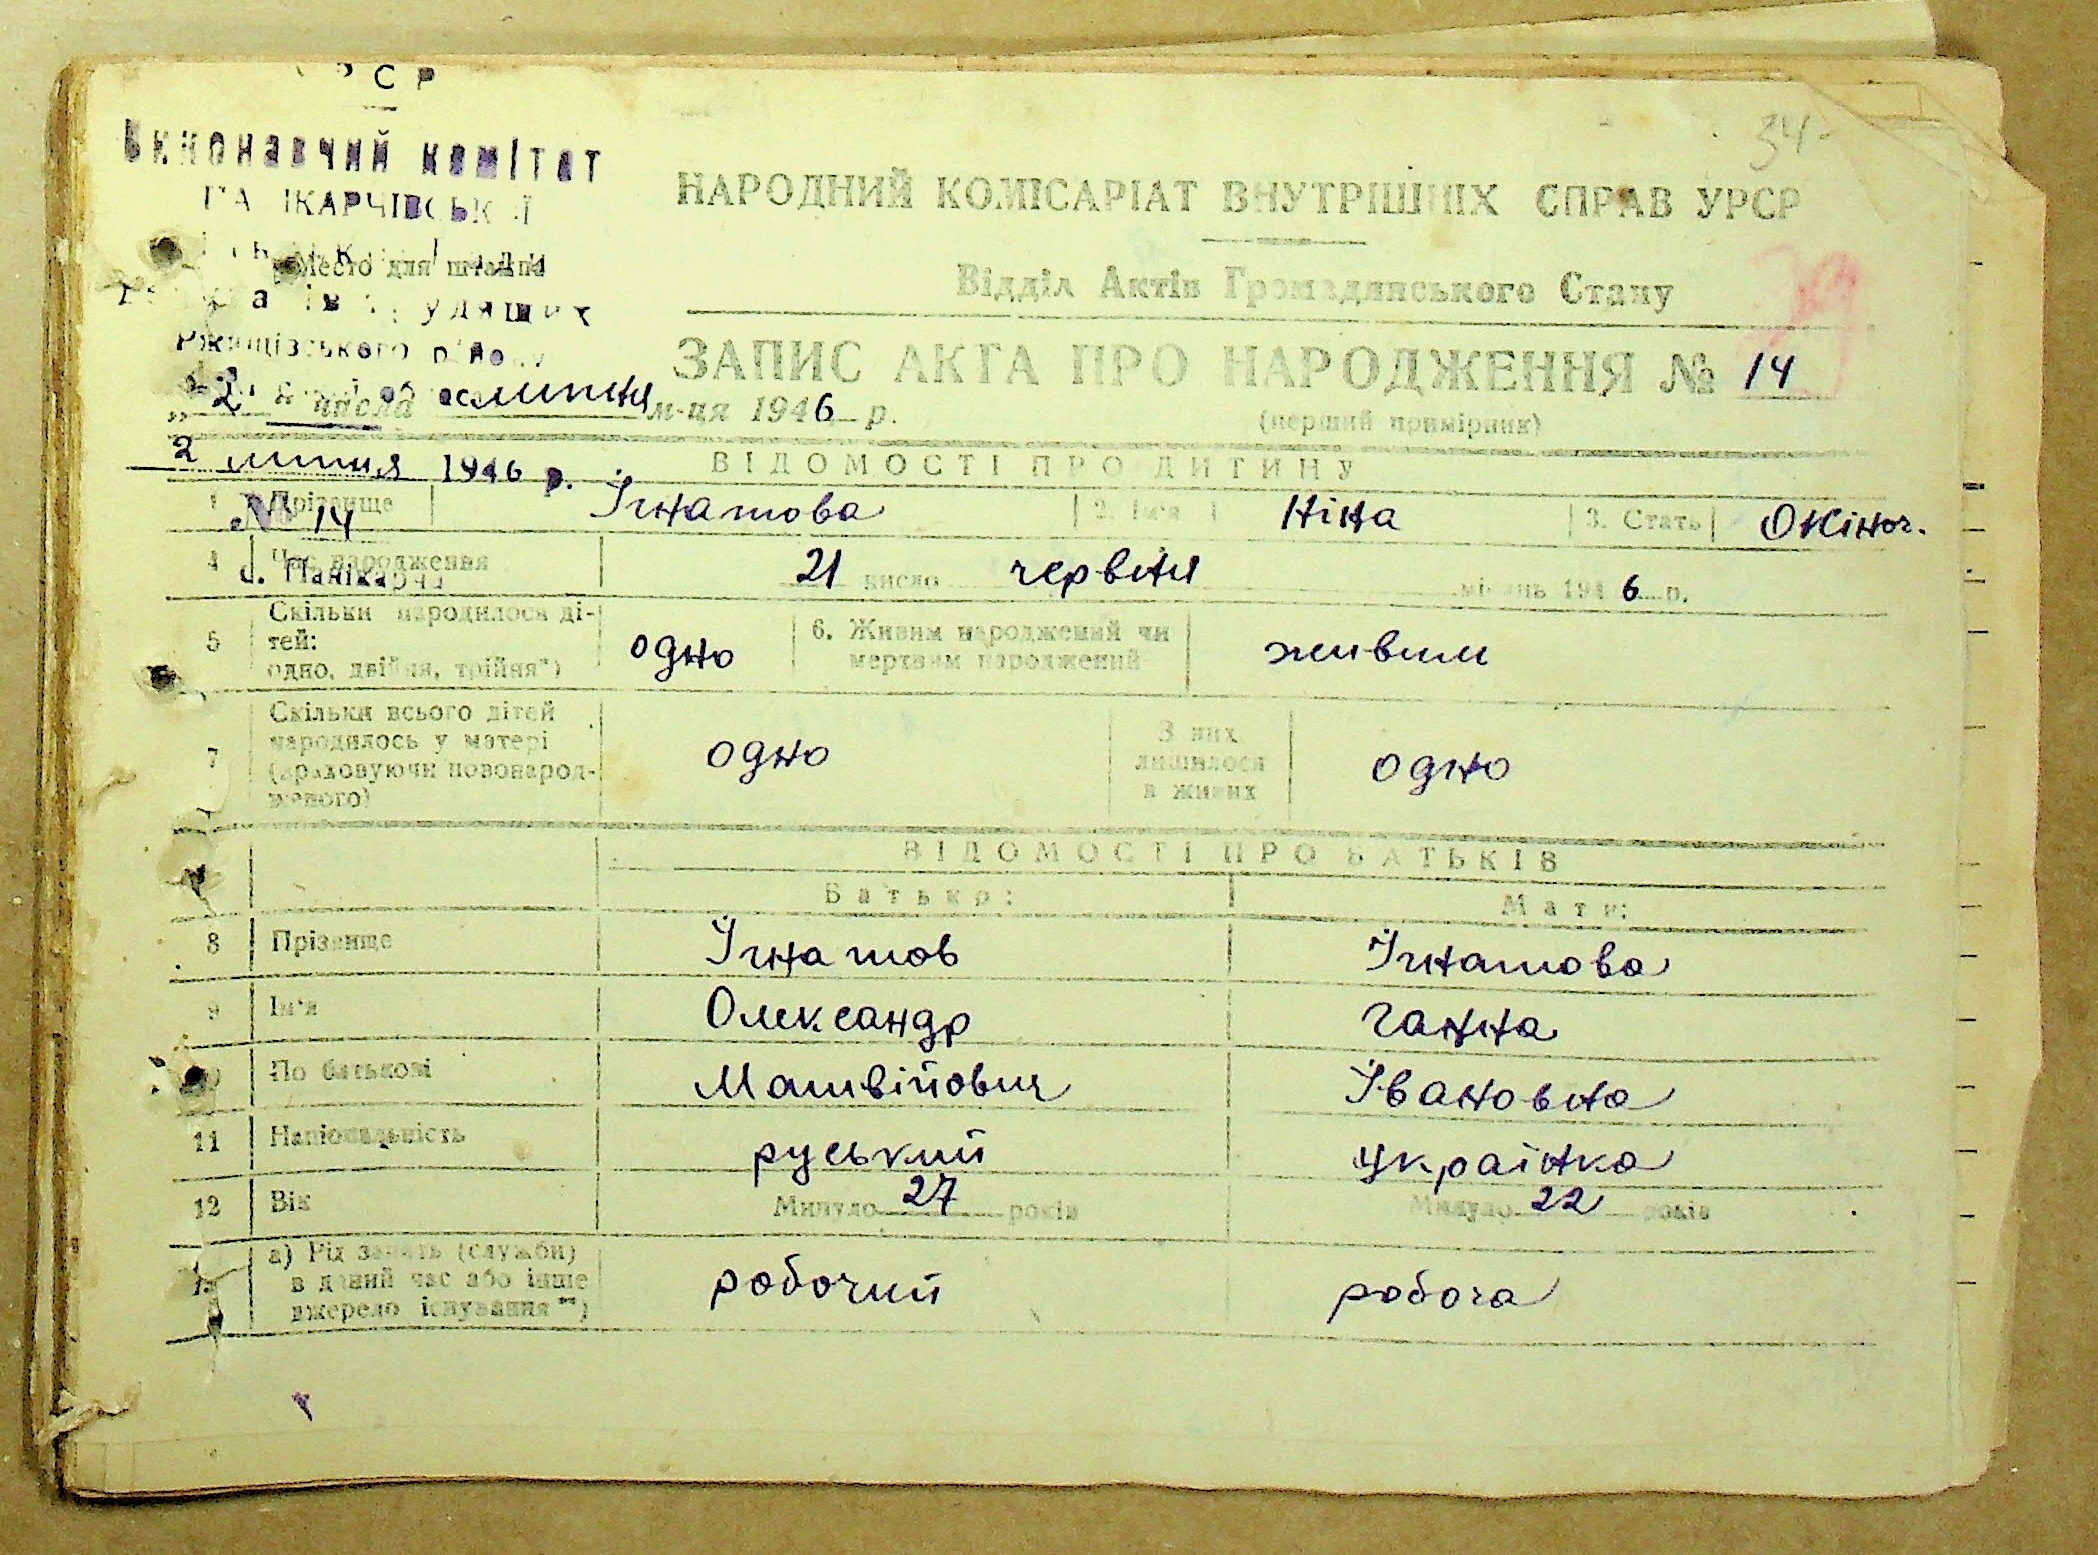 РСР
Виконавчий комітет
ПАНІКАРЧІВСЬКОЇ
Место для штампа
Ржищівського району
34
НАРОДНИЙ КОМІСАРІАТ ВНУТРІШНІХ СПРАВ УРСР
Відділ Актів Громадянського Стану
ЗАПИС АКТА ПРО НАРОДЖЕННЯ № 14
(перший примірник)
„ 2 " числа липня м-ця 1946 р.
2 липня 1946 р.
№ 14
с. Панікарча
ВІДОМОСТІ ПРО ДИТИНУ
1 Прізвище Ігнатова 2. Ім'я Ніна 3. Стать жіноч.
4 Час народження 21 число червня місяць 1946 р.
5 Скільки народилося ді-
тей:
одно, двійня, трійня*) одно
6. Живим народжений чи
мертвим народжений живим
7 Скільки всього дітей
народилось у матері
(враховуючи новонарод-
женого) одно
З них
лишилося
в живих одно
ВІДОМОСТІ ПРО БАТЬКІВ
Батько: Мати:
8 Прізвище Ігнатов Ігнатова
9 Ім'я Олександр Ганна
10 По батькові Матвійович Івановна
11 Національність руський українка
12 Вік Минуло 27 років Минуло 22 років
13 а) Рід занять (служби)
в даний час або інше
джерело існування**) робочий робоча